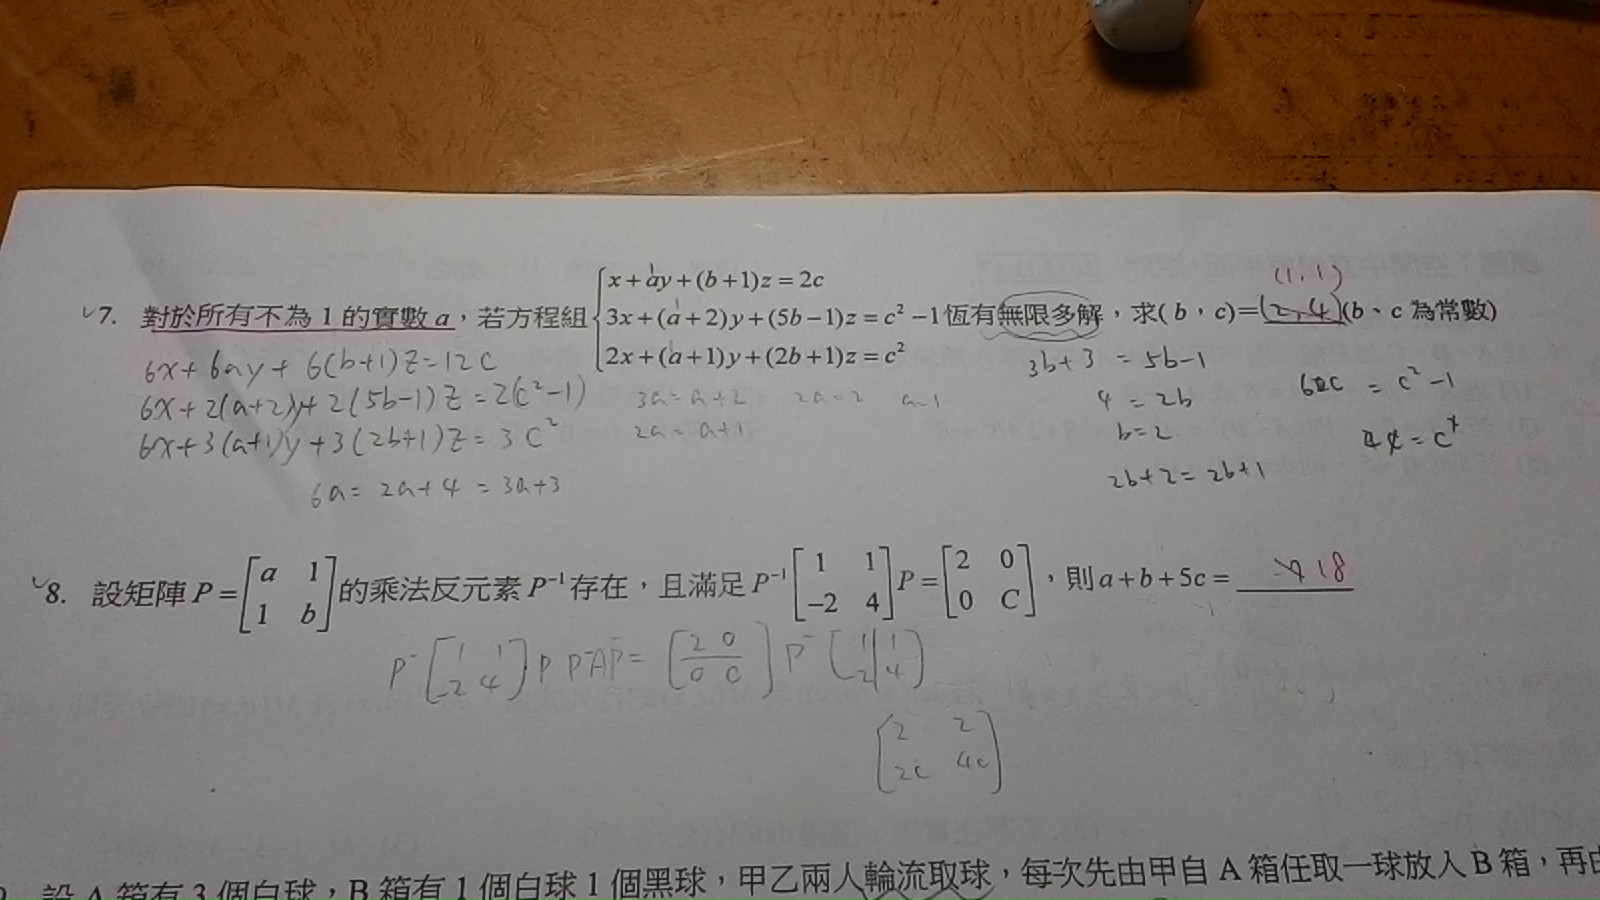 (1,1)
7. 對於所有不為 1 的實數 a，若方程組
x + ay + (b + 1)z = 2c
3x + (a + 2)y + (5b − 1)z = c² − 1
2x + (a + 1)y + (2b + 1)z = c²
恆有無限多解，求( b，c)= (2,4) (b、c 為常數)
6x + 6ay + 6(b+1)z = 12c
6x + 2(a+2)y + 2(5b-1)z = 2(c²-1)
6x + 3(a+1)y + 3(2b+1)z = 3c²
6a = 2a+4 = 3a+3
3a = a+2 2a = 2 a=1
2a = a+1
3b+3 = 5b-1
4 = 2b
b = 2
2b+2 = 2b+1
= c² -1
8. 設矩陣 P = [a 1; 1 b] 的乘法反元素 P⁻¹ 存在，且滿足 P⁻¹ [1 1; −2 4] P = [2 0; 0 C]，則 a + b + 5c = 18
P⁻ [1 1; -2 4] P P⁻AP = [2 0; 0 c] P⁻ [1 1; -2 4]
[2 2; 2c 4c]
設 A 箱有 3 個白球，B 箱有 1 個白球 1 個黑球，甲乙兩人輪流取球，每次先由甲自 A 箱任取一球放入 B 箱，再由